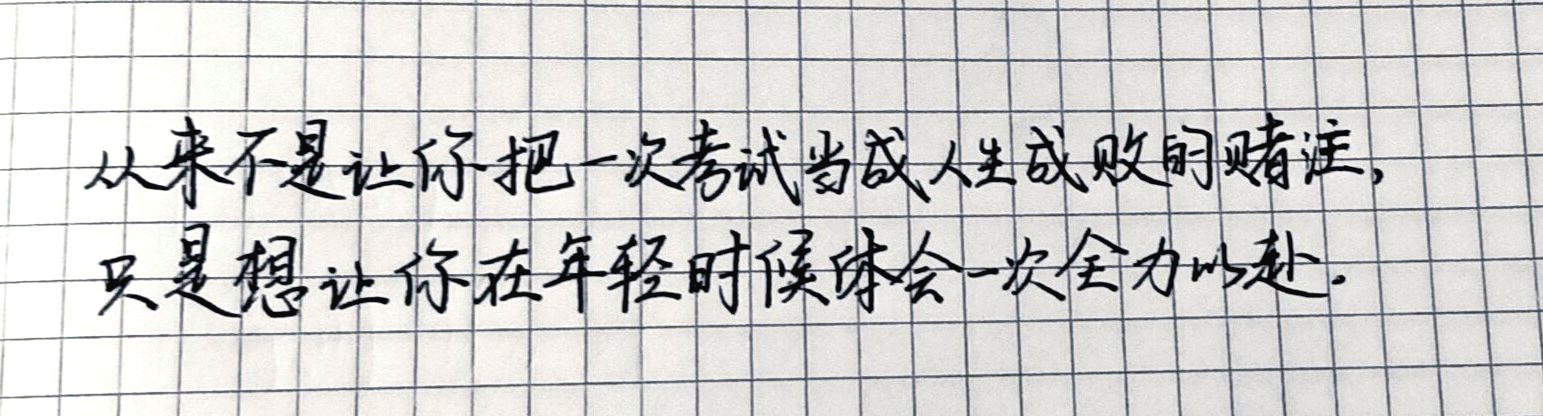 从来不是让你把一次考试当成人生成败的赌注,
只是想让你在年轻时候体会一次全力以赴.